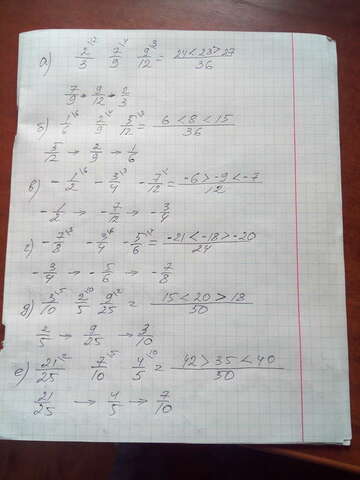 а) 2/3 ¹² 7/9 ⁴ 9/12 ³ = 24 < 28 > 27 / 36
7/9 → 9/12 → 2/3
б) 1/6 ⁶ 2/9 ⁴ 5/12 ³ = 6 < 8 < 15 / 36
5/12 → 2/9 → 1/6
в) - 1/2 ⁶ - 3/4 ³ - 7/12 ¹ = -6 > -9 < -7 / 12
- 1/2 → - 7/12 → - 3/4
г) - 7/8 ³ - 3/4 ⁶ - 5/6 ⁴ = -21 < -18 > -20 / 24
- 3/4 → - 5/6 → - 7/8
д) 3/10 ⁵ 2/5 ¹⁰ 9/25 ² = 15 < 20 > 18 / 50
2/5 → 9/25 → 3/10
е) 21/25 ² 7/10 ⁵ 4/5 ¹⁰ = 42 > 35 < 40 / 50
21/25 → 4/5 → 7/10